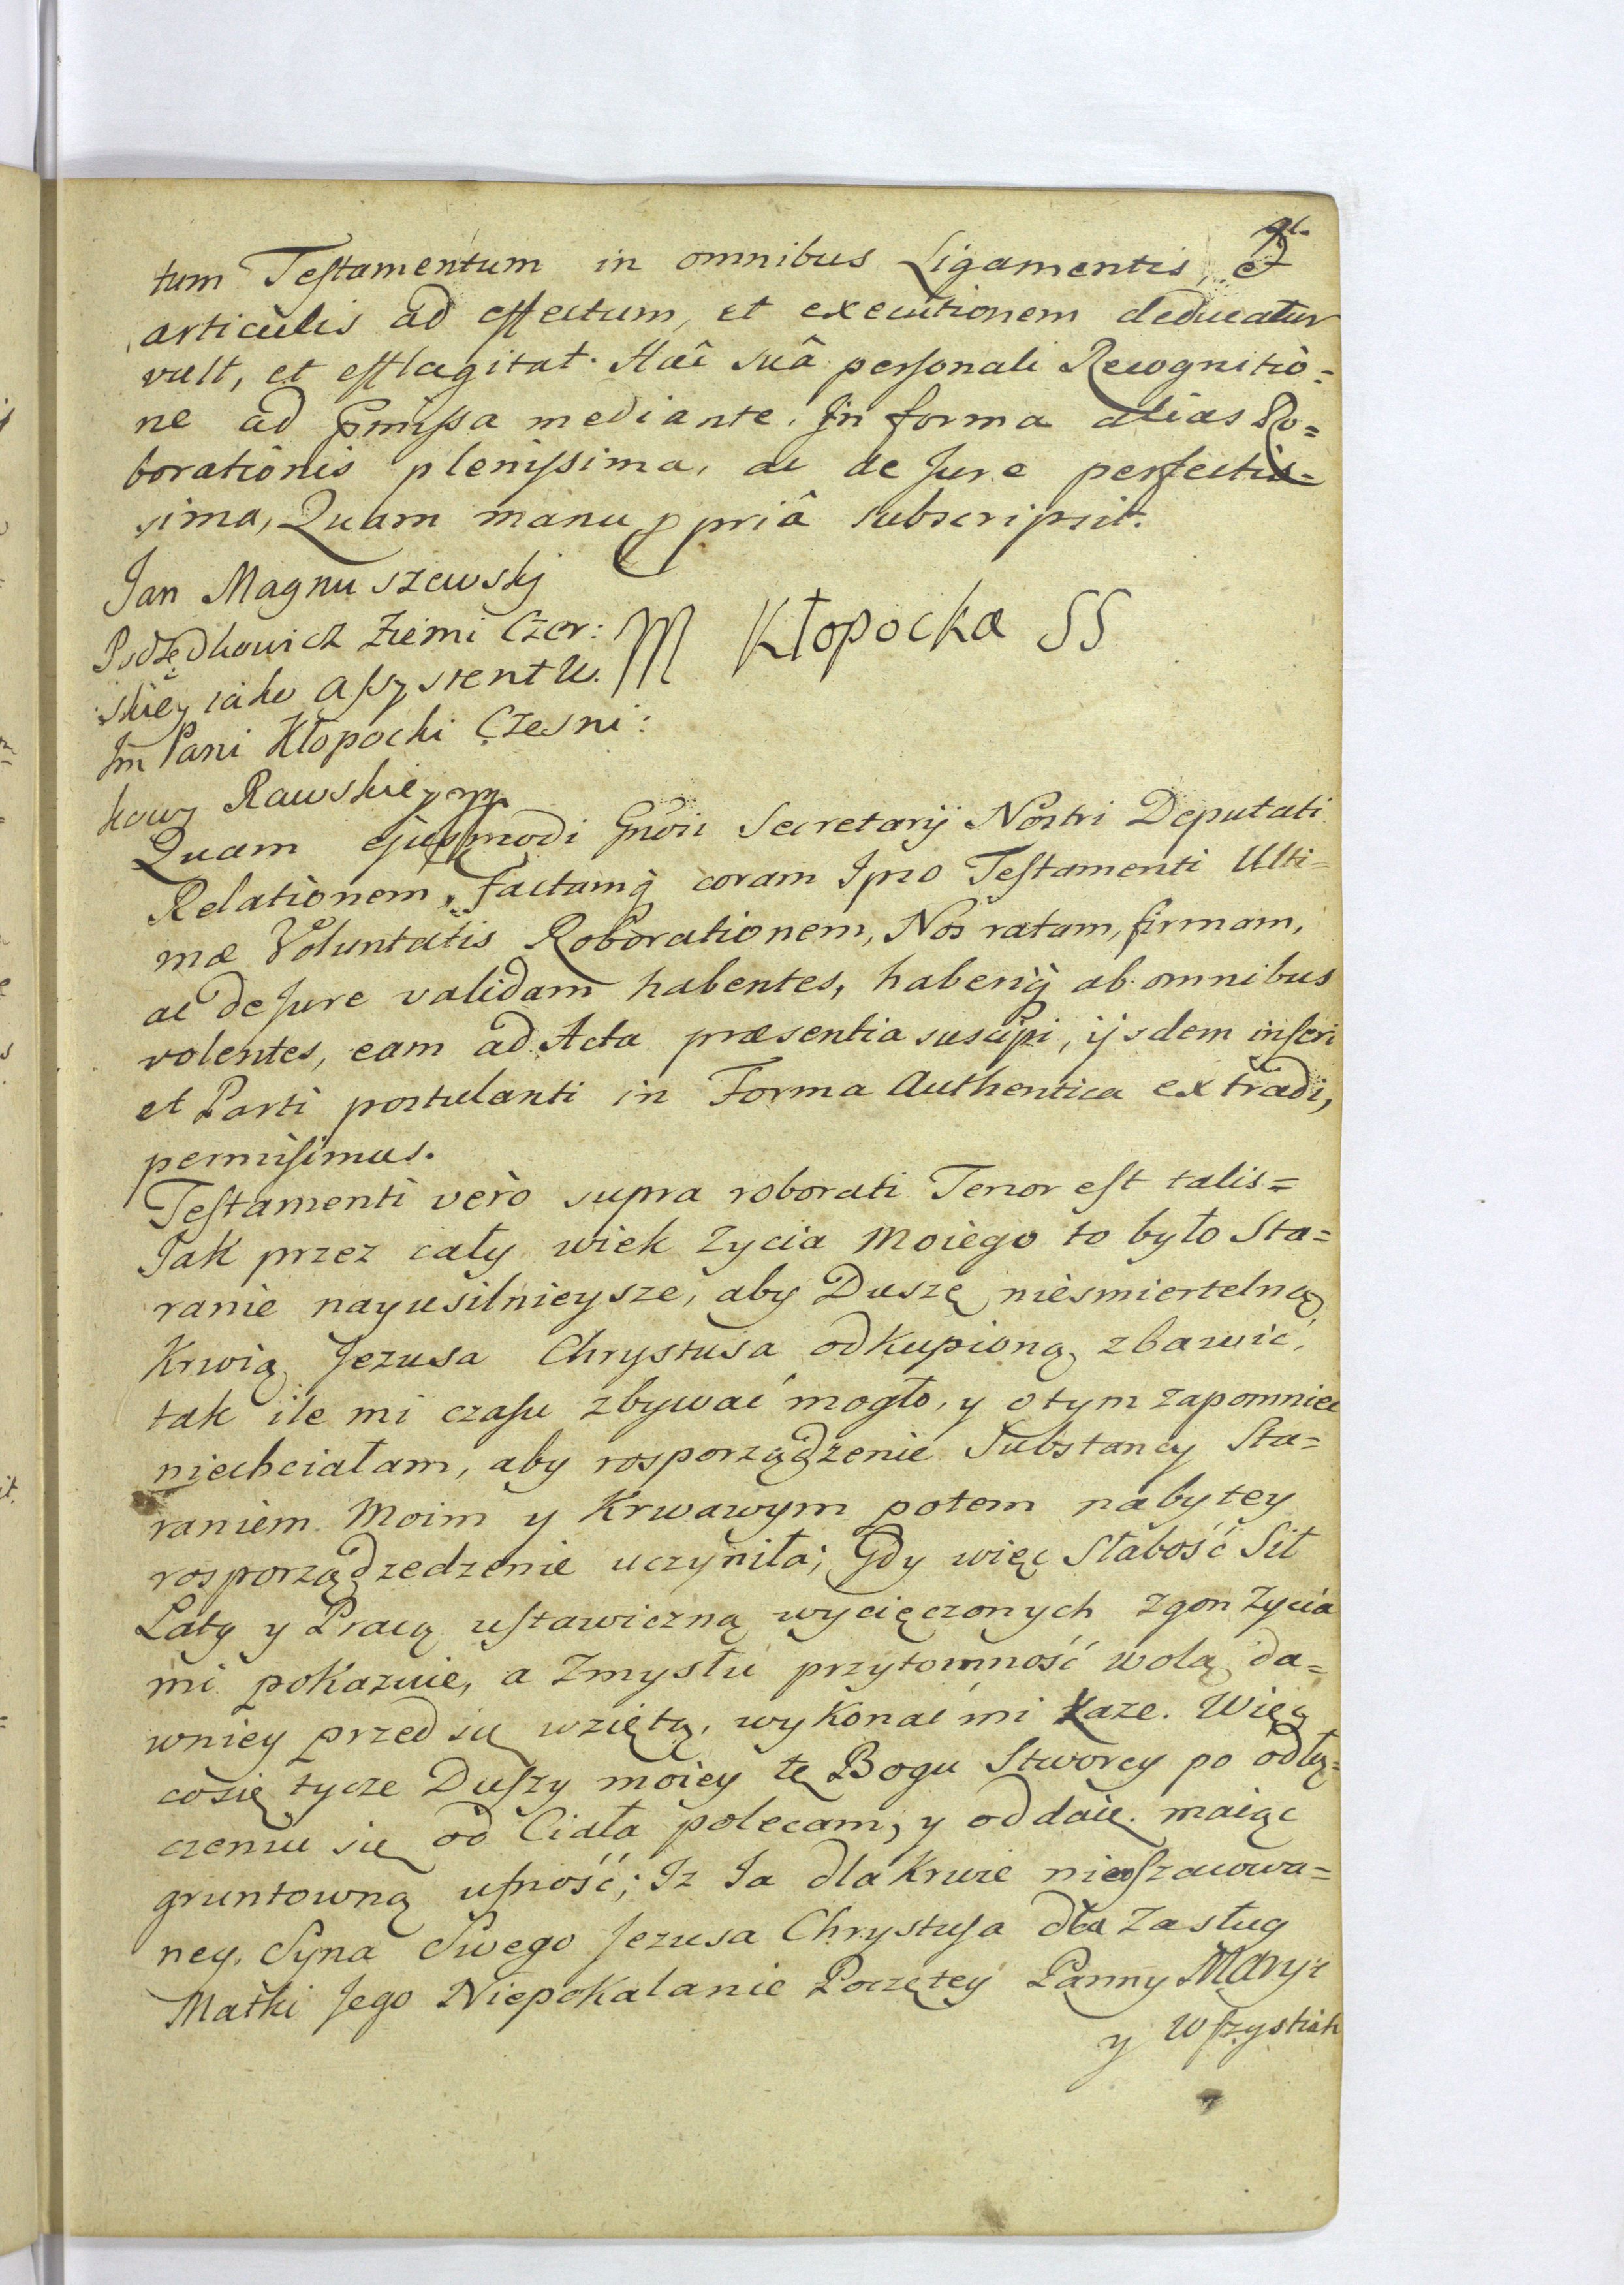 tum Testamentum in omnibus Ligamentis, et
articulis ad effectum, et executionem deducatur
vult, et efflagitat. Hac suâ personali Recognitio=
ne ad pmissa mediante. In forma alias Ro=
borationis plenissima, ac de Jure perfectis=
sima, Quam manu ppriâ subscripsit.
Jan Magnuszewskj
Podsędkowicz Ziemi Czer:
skiey iako assystent u.
Jm Pani Kłopocki Czesni:
kowy Rawskiey mp
M Kłopocka SS
Quam ejusmodi Gnosi Secretarij Nostri Deputati
Relationem, factamq̃ coram Ipso Testamenti Ulti=
mæ Voluntatis Roborationem, Nos ratam, firmam,
ac de Jure validam habentes, haberiq̃ ab omnibus
volentes, eam ad Acta præsentia suscipi, ijsdem inseri
et Parti postulanti in Forma Authentica extradi,
permisimus.
Testamenti verò supra roborati Tenor est talis=
Jak przez cały wiek Zycia Moiego to było Sta=
ranie nayusilnieysze, aby Duszę niesmiertelną
Krwią Jezusa Chrystusa odkupioną zbawić,
tak ile mi czasu zbywać mogło, y o tym zapomniec
niechciałam, aby rosporządzenie Substancy Sta=
raniem Moim y Krwawym potem nabytey
rosporządzedzenie uczyniła; Gdy więc Słabość Sił
Laty y Pracą ustawiczną wycięczonych zgon Zycia
mi pokazuie, a Zmysłu przytomność wolą da=
wniey przed się wziętą, wykonać mi każe. Więc
cosię tycze Duszy moiey tę Bogu Stworcy po odłą=
czeniu się od Ciała polecam, y oddaię. maiąc
gruntowną ufność; Iz Ja dla Krwie nieoszacowa=
ney, Syna Swego Jezusa Chrystusa dla Zasług
Matki Jego Niepokalanie Poczętey Panny Maryi
y Wszystkich